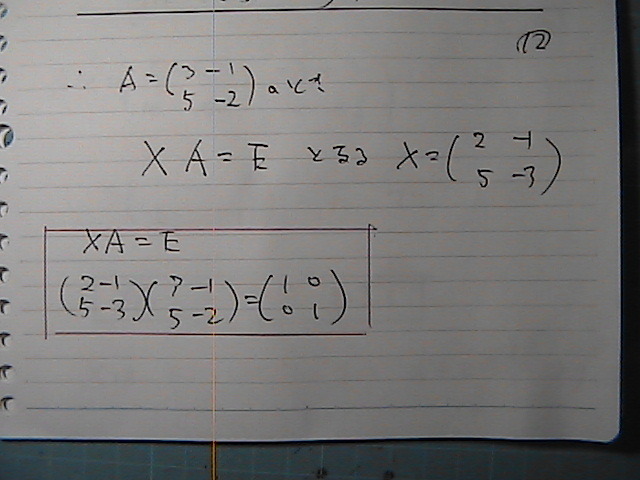 ⑫
∴ A = (3 -1
5 -2) のとき
XA = E となる X = (2 -1
5 -3)
XA = E
(2 -1
5 -3)(3 -1
5 -2) = (1 0
0 1)